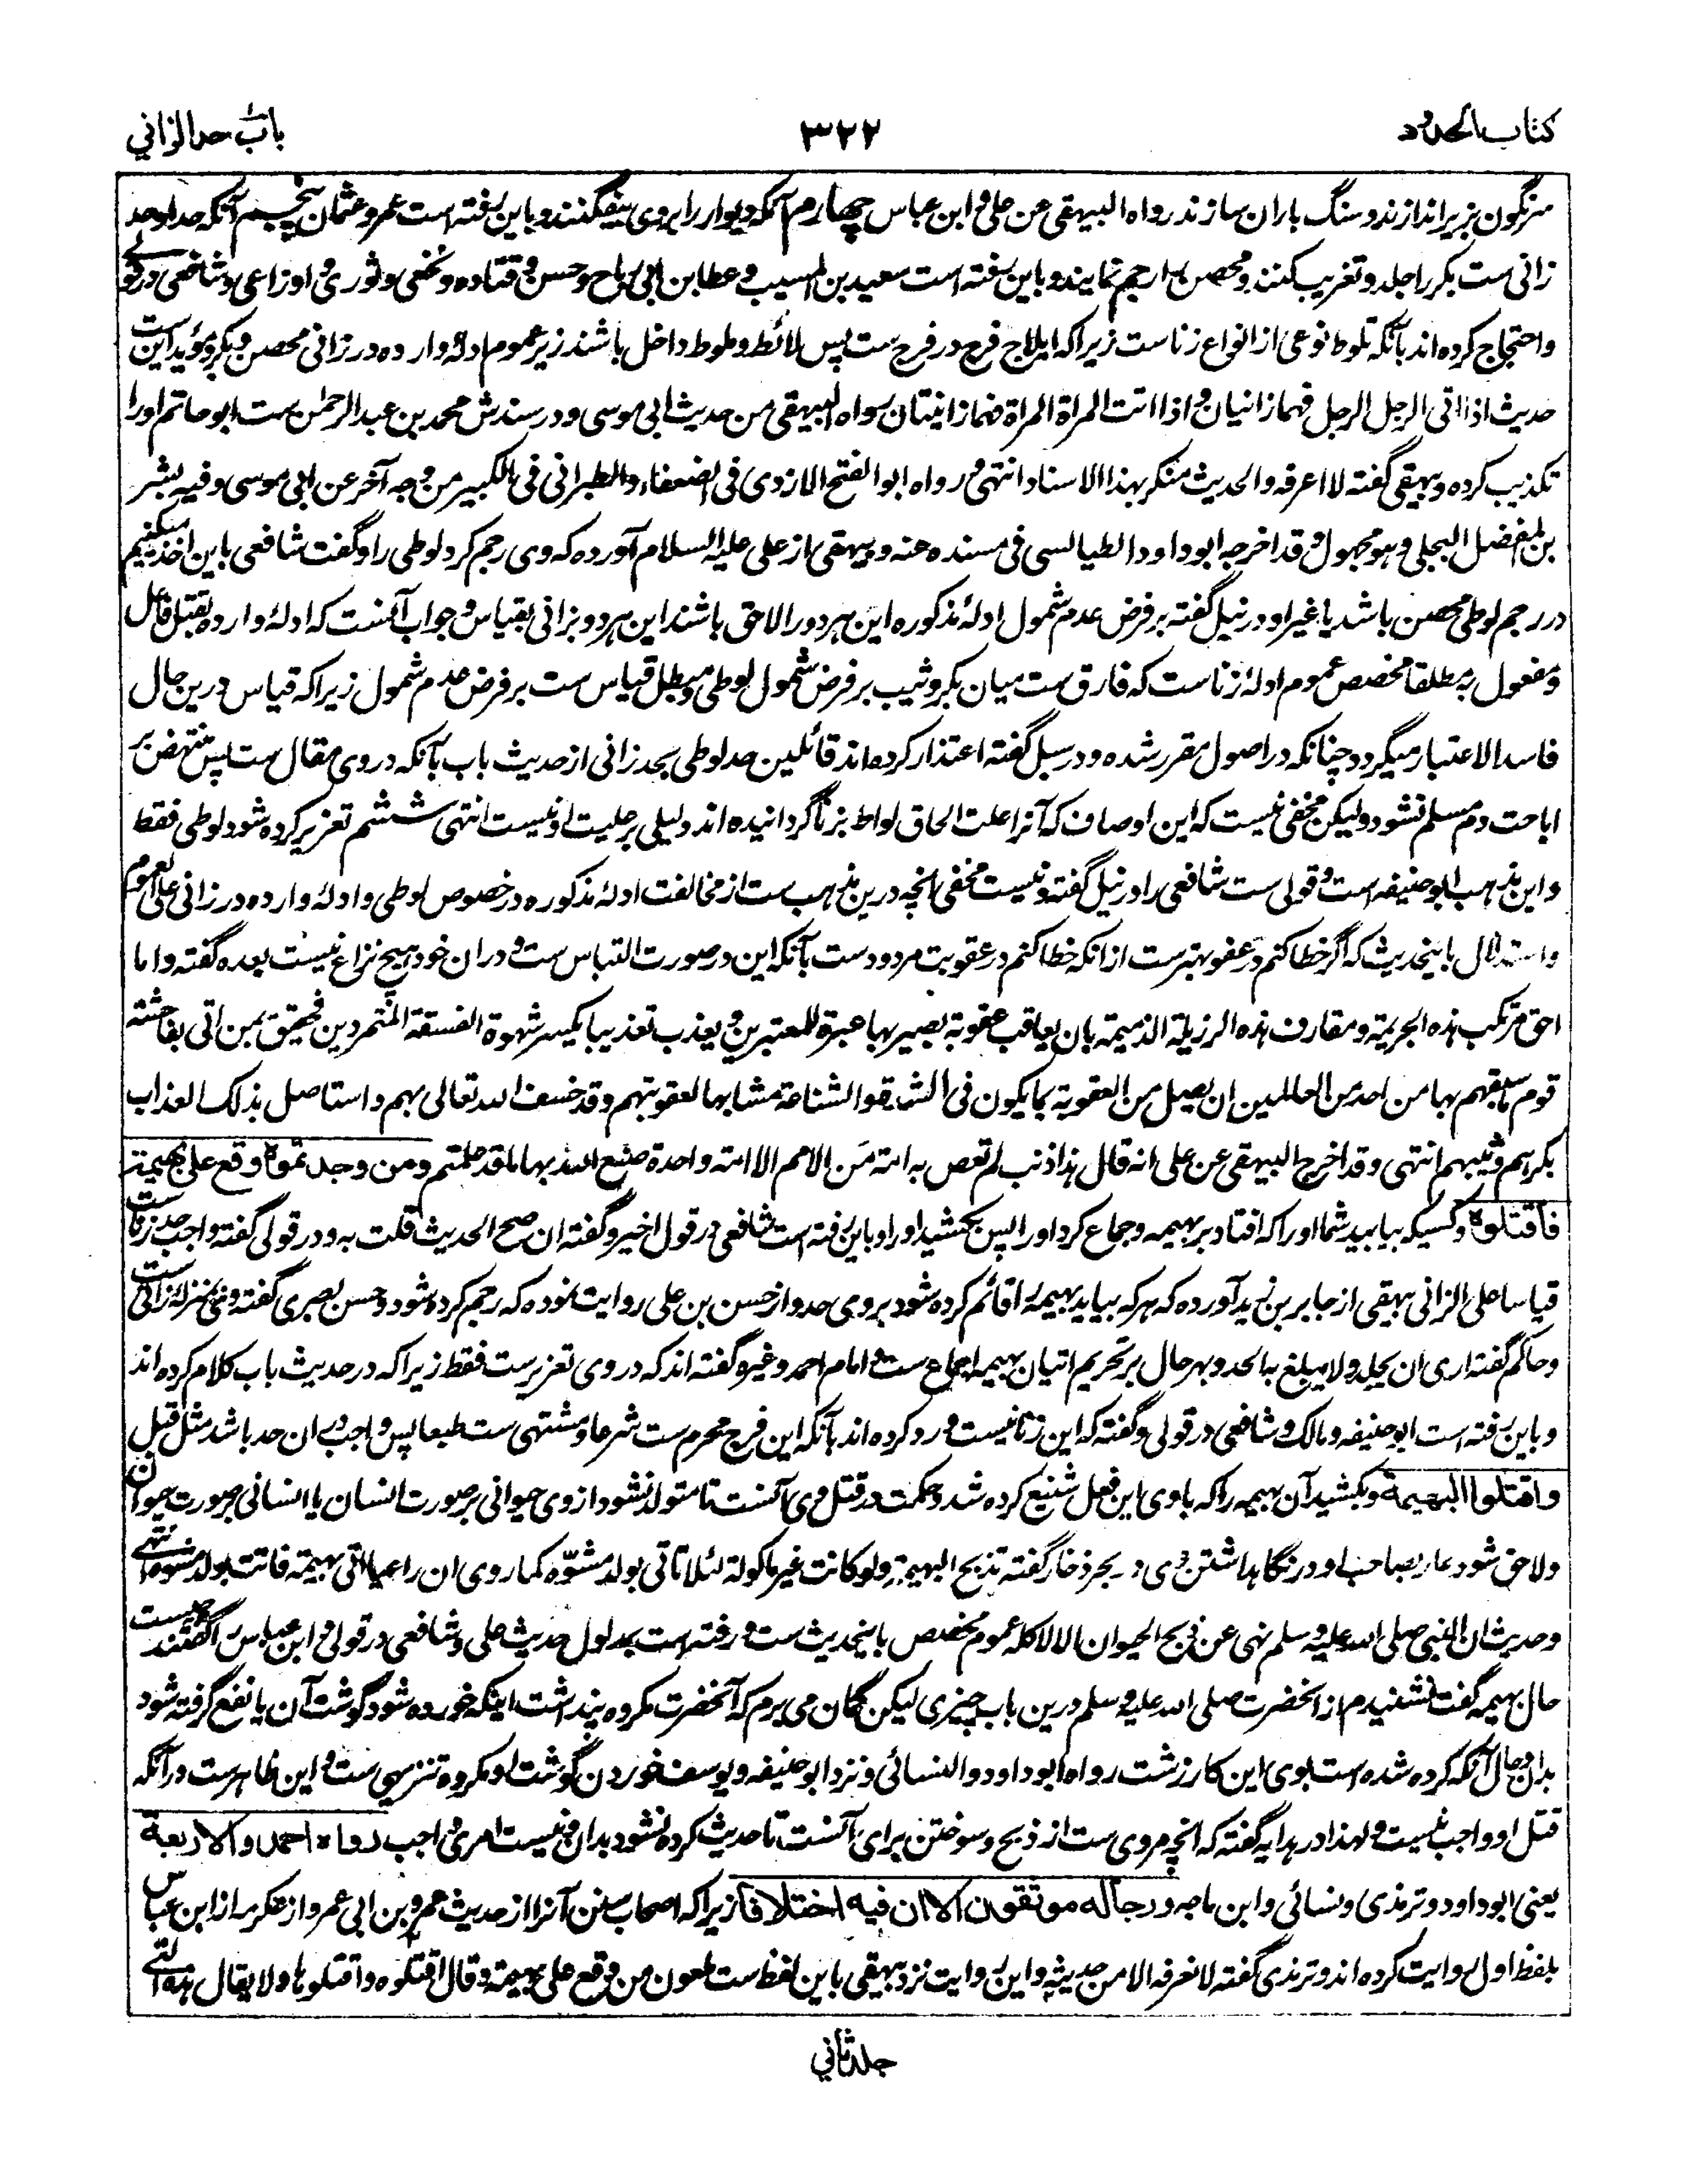 كتاب الحدود
٣٢٢
باب حد الزاني
سرنگون بزیر اندازند و سنگ باران سازند رواه البیهقی عن علی و ابن عباس چهارم آنکه دیوار را بروی بیفگنند و باین رفته است عمر و عثمان پنجم آنکه حد او حد
زانی ست بکر را جلد و تغریب کنند و محصن را رجم نمایند و باین رفته است سعید بن المسیب و عطا بن ابی رباح و حسن و قتاده و نخعی و ثوری و اوزاعی و شافعی در قولے
و احتجاج کرده اند بآنکه تلوط نوعی از انواع زناست زیرا که ایلاج فرج در فرج ست پس لائط و ملوط داخل باشند زیر عموم ادلهٔ وارده در زانی محصن و بکر و مؤید این ست
حدیث اذا اتی الرجل الرجل فهما زانیان و اذا اتت المراة المراة فهما زانیتان رواه البیهقی من حدیث ابی موسی و در سندش محمد بن عبدالرحمٰن ست ابو حاتم او را
تکذیب کرده و بیهقی گفته لا اعرفه والحدیث منکر بهذا الاسناد انتهی و رواه ابو الفتح الازدی فی الضعفاء والطبرانی فی الکبیر من وجه آخر عن ابی موسی وفیه بشر
بن المفضل البجلی وهو مجهول وقد اخرجه ابو داود الطیالسی فی مسنده عنه و بیهقی از علی علیه السلام آورده که وی رجم کرد لوطی را و گفت شافعی باین اخذ میکنیم
در رجم لوطی محصن باشد یا غیر او در نیل گفته بر فرض عدم شمول ادلهٔ مذکوره این هر دو را لاحق باشند این هر دو بزانی بقیاس و جواب آنست که ادلهٔ وارده بقتل فاعل
و مفعول به مطلقا مخصص عموم ادلهٔ زناست که فارق ست میان بکر و ثیب بر فرض شمول لوطی و مبطل قیاس ست بر فرض عدم شمول زیرا که قیاس درین حال
فاسد الاعتبار میگردد چنانکه در اصول مقرر شده و در سبل گفته اعتذار کرده اند قائلین حد لوطی بحد زانی از حدیث باب بآنکه در وی مقال ست پس منتهض بر
اباحت دم مسلم نشود و لیکن مخفی نیست که این اوصاف که آنرا علت الحاق لواط بزنا گردانیده اند دلیلی بر علیت او نیست انتهی ششم تعزیر کرده شود لوطی فقط
و این مذهب ابو حنیفه است و قولی ست شافعی را در نیل گفته و نیست مخفی انچه درین مذهب ست از مخالفت ادلهٔ مذکوره در خصوص لوطی و ادلهٔ وارده در زانی علی العموم
و استدلال باینحدیث که اگر خطا کنم در عفو بهترست از انکه خطا کنم در عقوبت مردودست بآنکه این در صورت التباس ست و در ان خود هیچ نزاع نیست بعده گفته و اما
احق مرتکب هذه الجریمة ومقارف هذه الرزیلة الذمیمة بان یعاقب عقوبة یصیر بها عبرة للمعتبرین ویعذب تعذیبا یکسر شهوة الفسقة المتمردین فحقیق بمن اتی بفاحشة
قوم ما سبقهم بها من احد من العالمین ان یصلی من العقوبة بما یکون فی الشدة والشناعة مشابها لعقوبتهم وقد خسف الله تعالی بهم واستاصل بذلک العذاب
بکرهم وثیبهم انتهی وقد اخرج البیهقی عن علی انه قال هذا ذنب لم تعص به امة من الامم الا امة واحدة صنع الله بها ما قد علمتم ومن وجدتموه وقع علی بهیمة
فاقتلوه و کسیکه بیابید شما او را که افتاد بر بهیمه و جماع کرد او را پس بکشید او را و باین رفته است شافعی در قول اخیر و گفته ان صح الحدیث قلت به و در قولی گفته واجب حد زناست
قیاسا علی الزانی بیهقی از جابر بن زید آورده که هر که بیاید بهیمه را قائم کرده شود بروی حد و از حسن بن علی روایت نموده که رجم کرده شود و حسن بصری گفته وی بمنزلهٔ زانی ست
و حاکم گفته اری ان یجلد ولا یبلغ به الحد و بهر حال بر تحریم اتیان بهیمه اجماع ست و امام احمد و غیره گفته اند که در وی تعزیرست فقط زیرا که در حدیث باب کلام کرده اند
و باین رفته است ابو حنیفه و مالک و شافعی در قولی و گفته که این زنا نیست و رد کرده اند بآنکه این فرج محرم ست شرعا و مشتهی ست طبعا پس واجب در ان حد باشد مثل قبل
واقتلوا البهیمة و بکشید آن بهیمه را که با وی این فعل شنیع کرده شد و حکمت در قتل وی آنست تا متولد نشود از وی حیوانی بر صورت انسان یا انسانی بر صورت حیوان
و لاحق شود عار بصاحب او در نگاهداشتن وی و در بحر ذخار گفته تذبح البهیمة ولو کانت غیر ماکولة لئلا تاتی بولد مشوّه کما روی ان راعیا اتی بهیمة فاتت بولد مشوه انتهے
و حدیث ان النبی صلی الله علیه وسلم نهی عن ذبح الحیوان الا لاکله عموم مخصص باینحدیث ست و رفته است بمدلول حدیث علی و شافعی در قولی و ابن عباس را گفتند چیست
حال بهیمه گفت نشنیدم از آنحضرت صلی الله علیه وسلم درین باب چیزی لیکن گمان می برم که آنحضرت مکروه پنداشت اینکه خورده شود گوشت آن یا نفع گرفته شود
بدان و حال آنکه کرده شده است بوی این کار زشت رواه ابو داود والنسائی و نزد ابو حنیفه و یوسف خوردن گوشت او مکروه تنزیهی ست و این ظاهرست در آنکه
قتل او واجب نیست و لهذا در هدایه گفته که انچه مروی ست از ذبح و سوختن برای آنست تا حدیث کرده نشود بدان و نیست امری واجب رواه احمد والاربعة
یعنی ابو داود و ترمذی و نسائی و ابن ماجه ورجاله موثقون الا ان فیه اختلافا زیرا که اصحاب سنن آنرا از حدیث عمرو بن ابی عمرو از عکرمه از ابن عباس
بلفظ اول روایت کرده اند و ترمذی گفته لا نعرفه الا من حدیثه و این روایت نزد بیهقی باین لفظ ست ملعون من وقع علی بهیمة وقال اقتلوه واقتلوها ولا یقال هذه التے
جلد ثاني